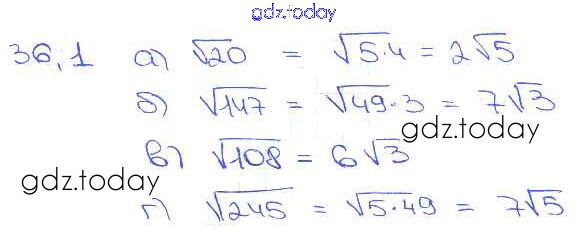 gdz.today
36,1 а) √20 = √5·4 = 2√5
б) √147 = √49·3 = 7√3
gdz.today
в) √108 = 6√3
gdz.today
г) √245 = √5·49 = 7√5